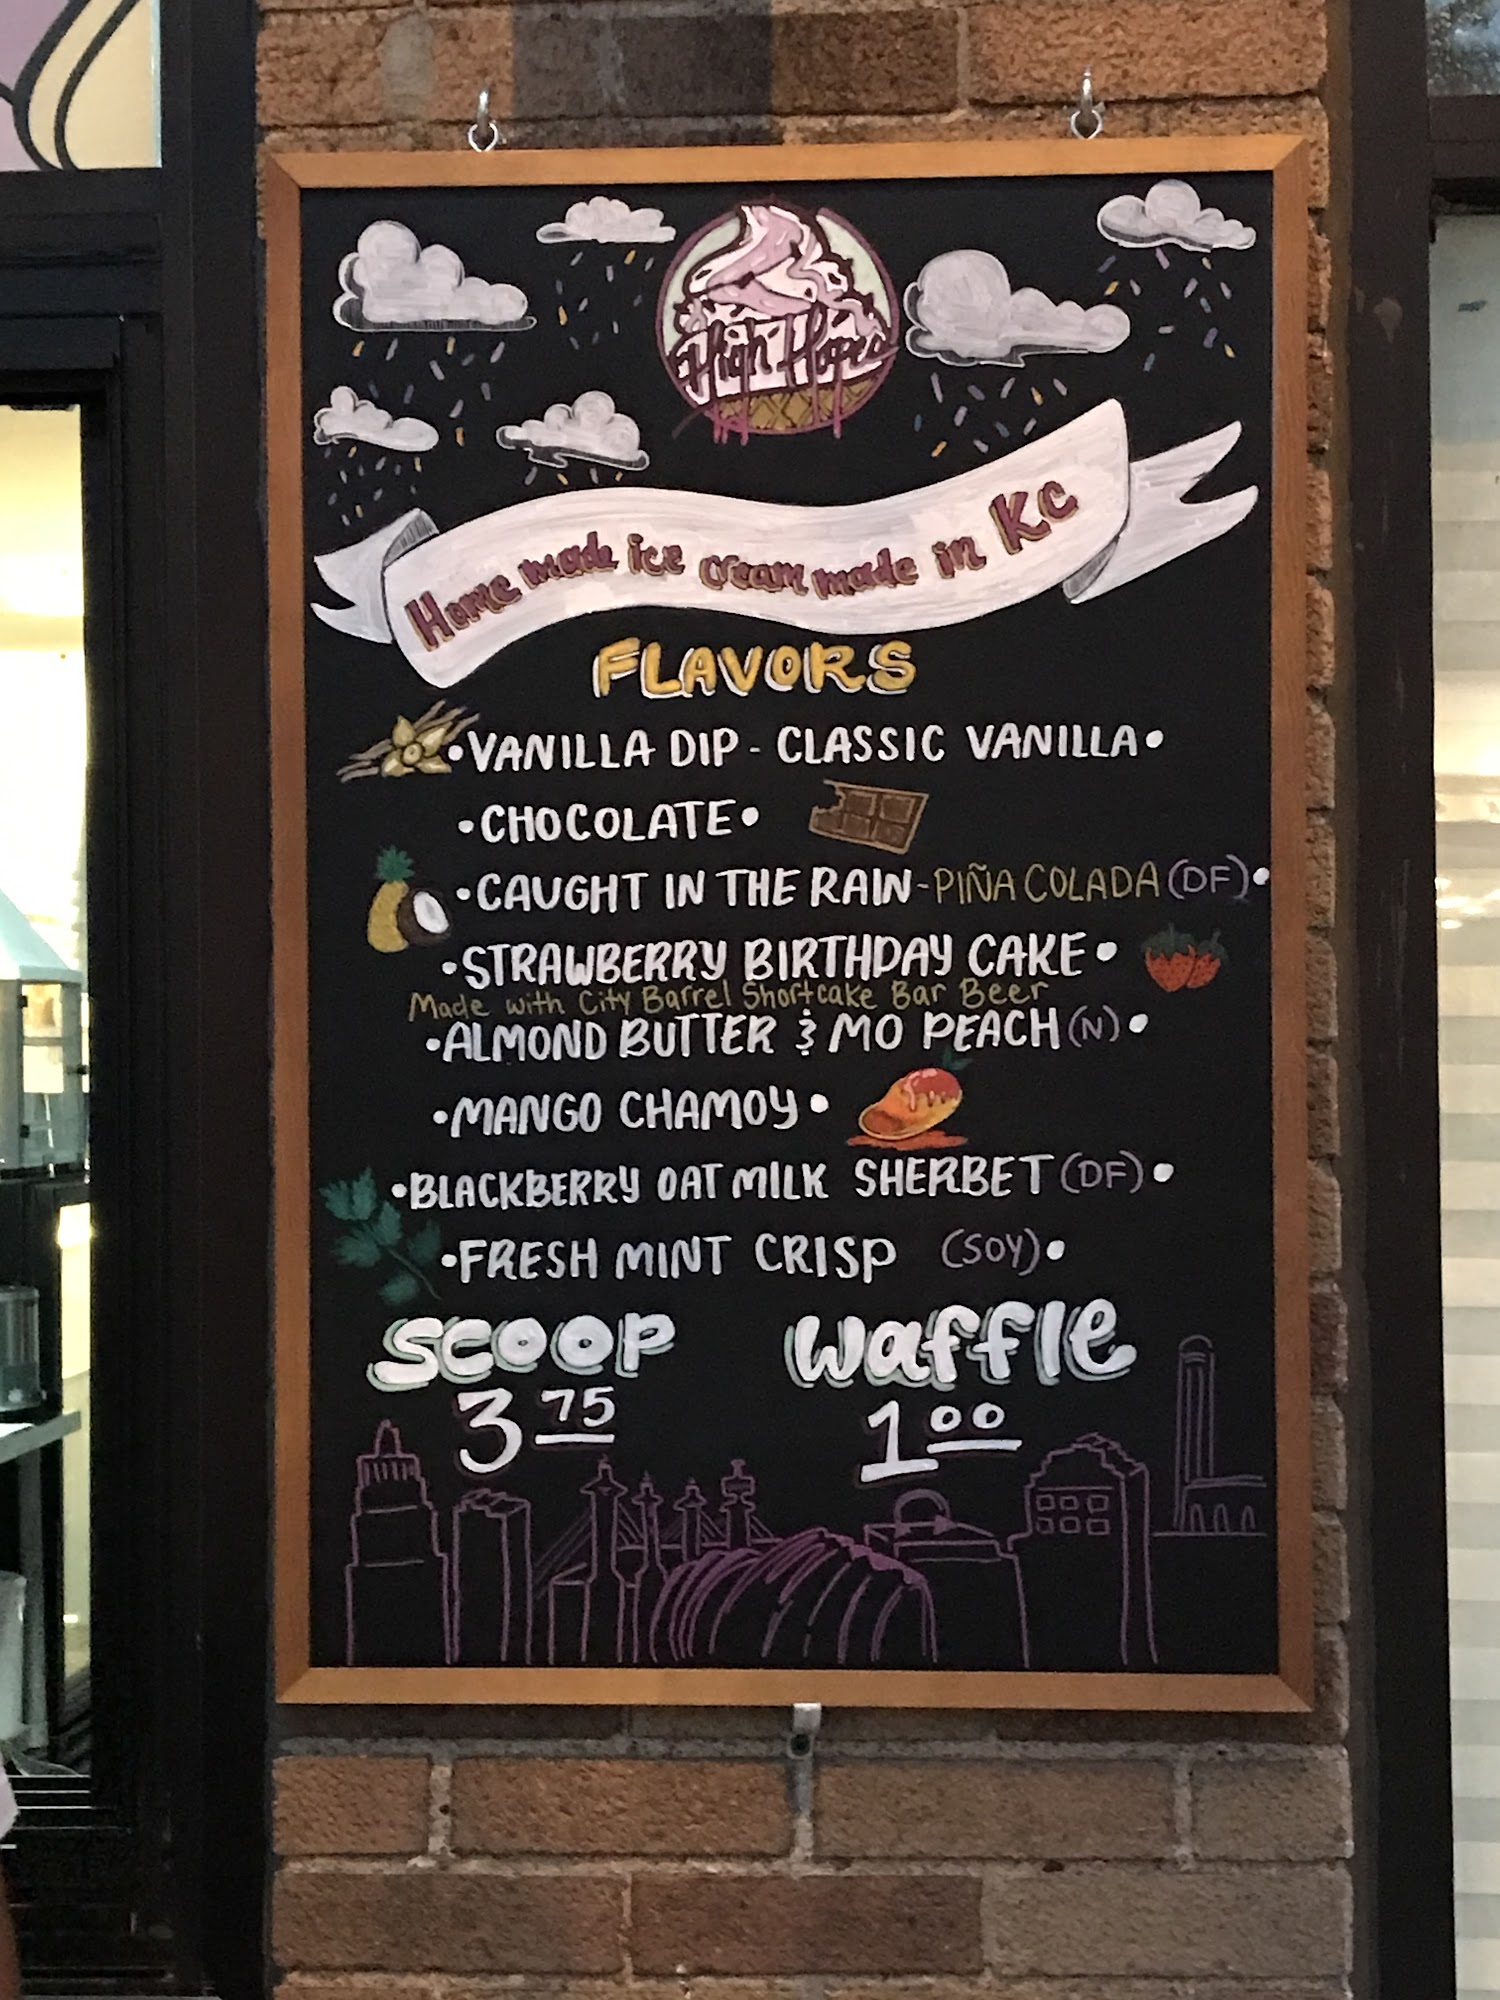 High Hopes
Home made ice cream made in KC
FLAVORS
•VANILLA DIP - CLASSIC VANILLA•
•CHOCOLATE•
•CAUGHT IN THE RAIN-PIÑA COLADA (DF)•
•STRAWBERRY BIRTHDAY CAKE•
Made with City Barrel Shortcake Bar Beer
•ALMOND BUTTER & MO PEACH (N)•
•MANGO CHAMOY•
•BLACKBERRY OAT MILK SHERBET (DF)•
•FRESH MINT CRISP (SOY)•
SCOOP waffle
3 75 1 00